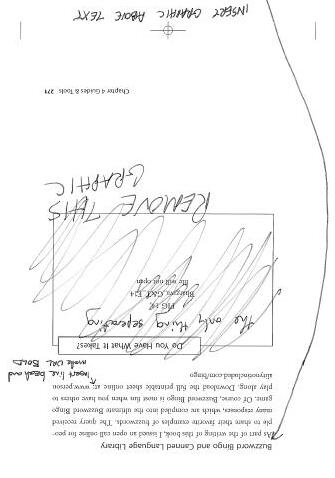 Buzzword and Bingo Canned Language Library
As part of the writing of this book, I issued an open call online for peo-
ple to share their favorite examples of buzzwords. The query received
many responses, which are compiled into the ultimate Buzzword Bingo
game. Of course, Buzzword Bingo is more fun when you have others to
play along. Download the full printable sheet online at: www.person
alityonleded.com/bingo.
insert line break and
make ore BOLD
Do You Have What It Takes?
the only thing seperating
FIG 1-4
Bhargva_GAT_F24
file will not open
REMOVE THIS
GRAPHIC
Chapter 4 Guides & Tools 271
INSERT GRAPHIC ABOVE TEXT